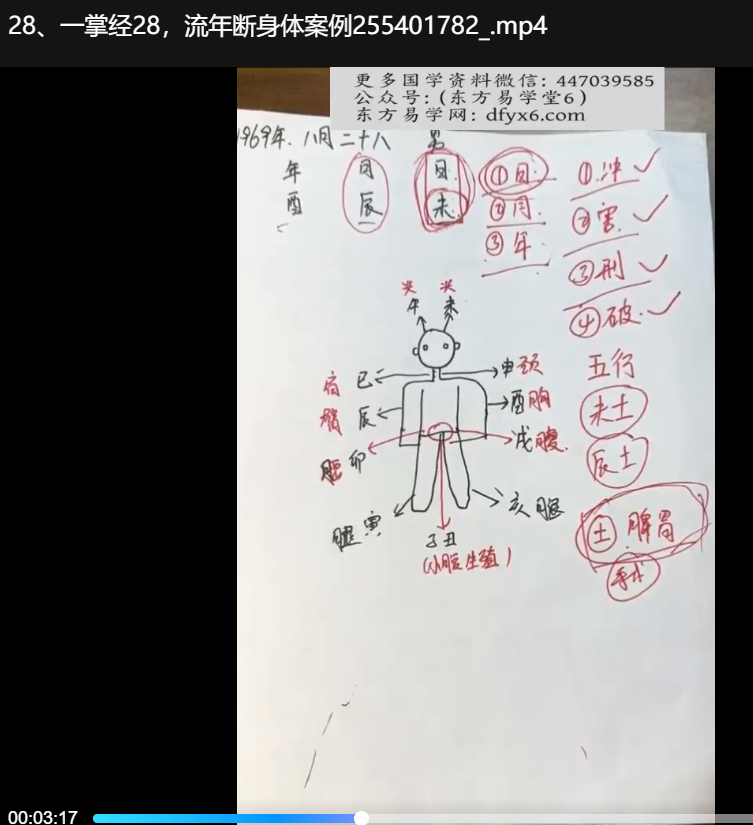 28、一掌经28，流年断身体案例255401782_.mp4
更多国学资料微信：447039585
公众号：（东方易学堂6）
东方易学网：dfyx6.com
1969年.八月二十八 男
年 月 日
酉 辰 未
①日
②月
③年
①冲
②害
③刑
④破
头 头
午 未
肩 巳
申 颈
臂 辰
酉 胸
腰 卯
戌 腹
腿 寅
亥 腿
子丑
(小腹生殖)
五行
未土
辰土
土 脾胃
00:03:17